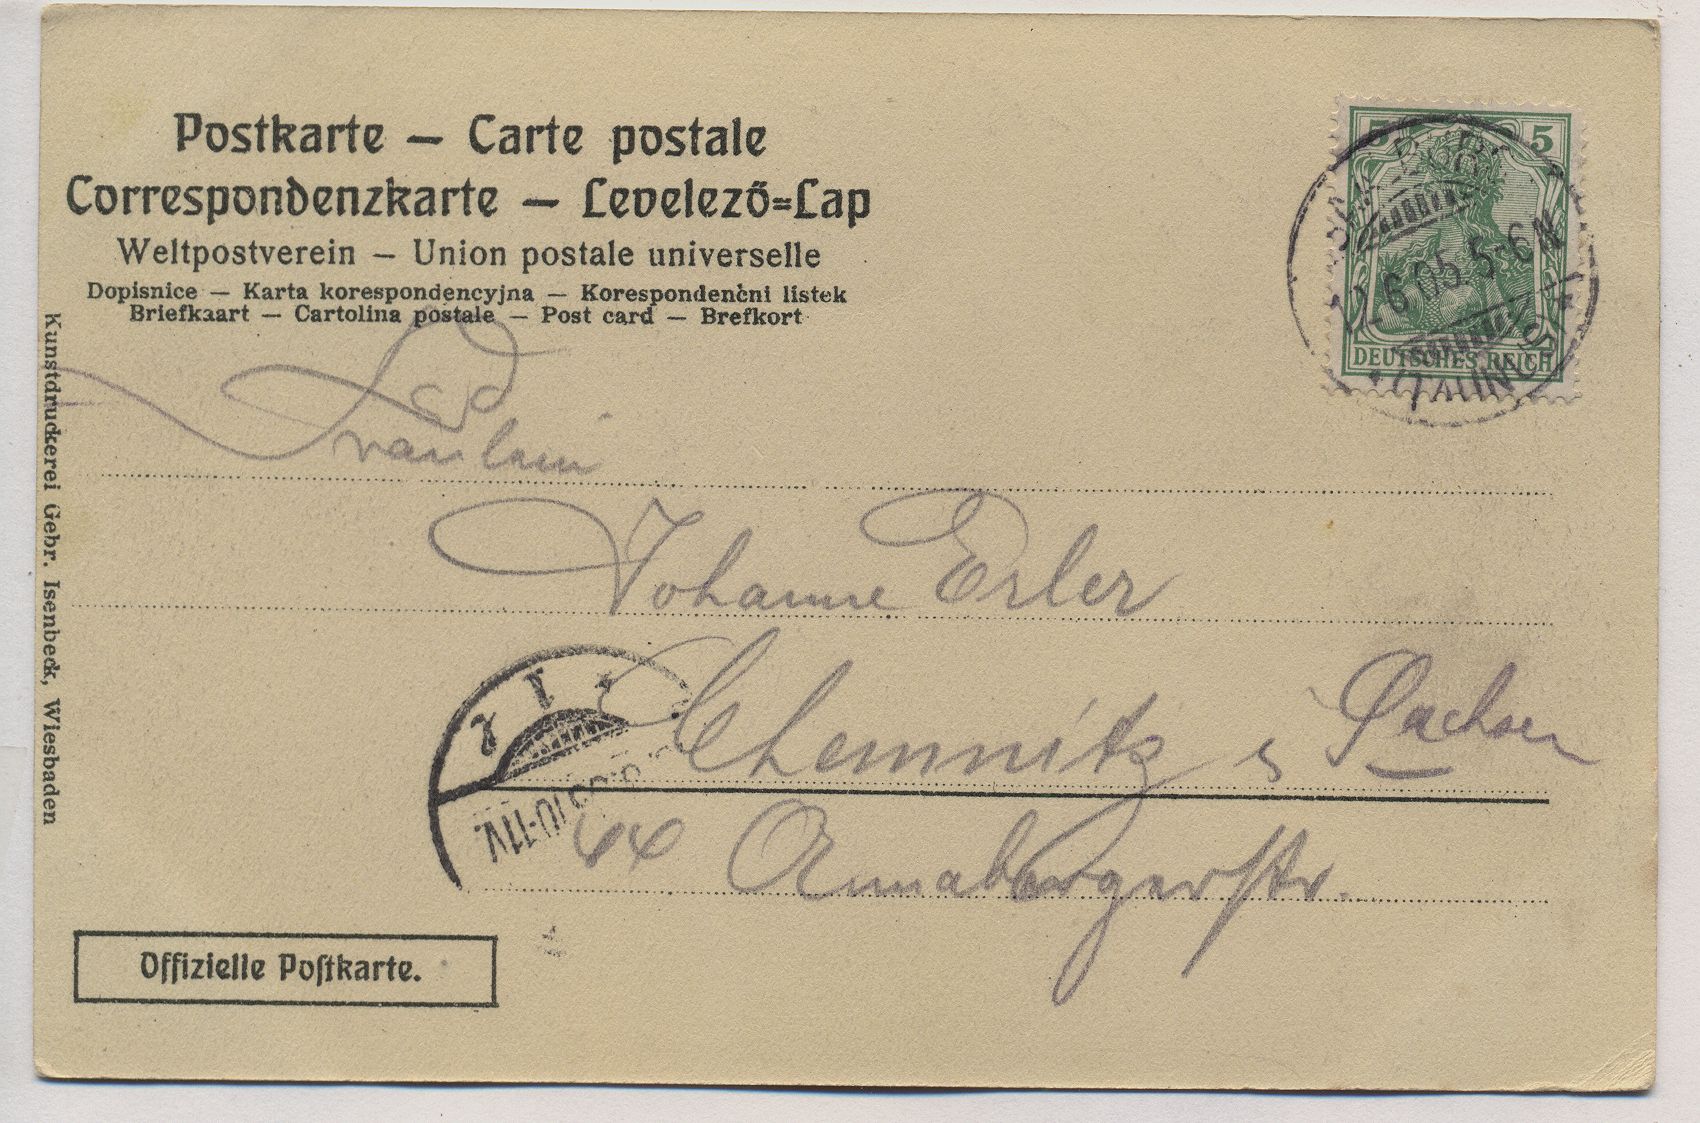 Postkarte – Carte postale
Correspondenzkarte – Levelező=Lap
Weltpostverein – Union postale universelle
Dopisnice – Karta korespondencyjna – Korespondenčni listek
Briefkaart – Cartolina postale – Post card – Brefkort
Kunstdruckerei Gebr. Isenbeck, Wiesbaden
5 5
DEUTSCHES REICH
6.05. 5-6N
(TAUNUS)
Fräulein
Johanne Erler
Chemnitz i Sachsen
44 Annabergerstr.
10-11V.
Offizielle Poſtkarte.